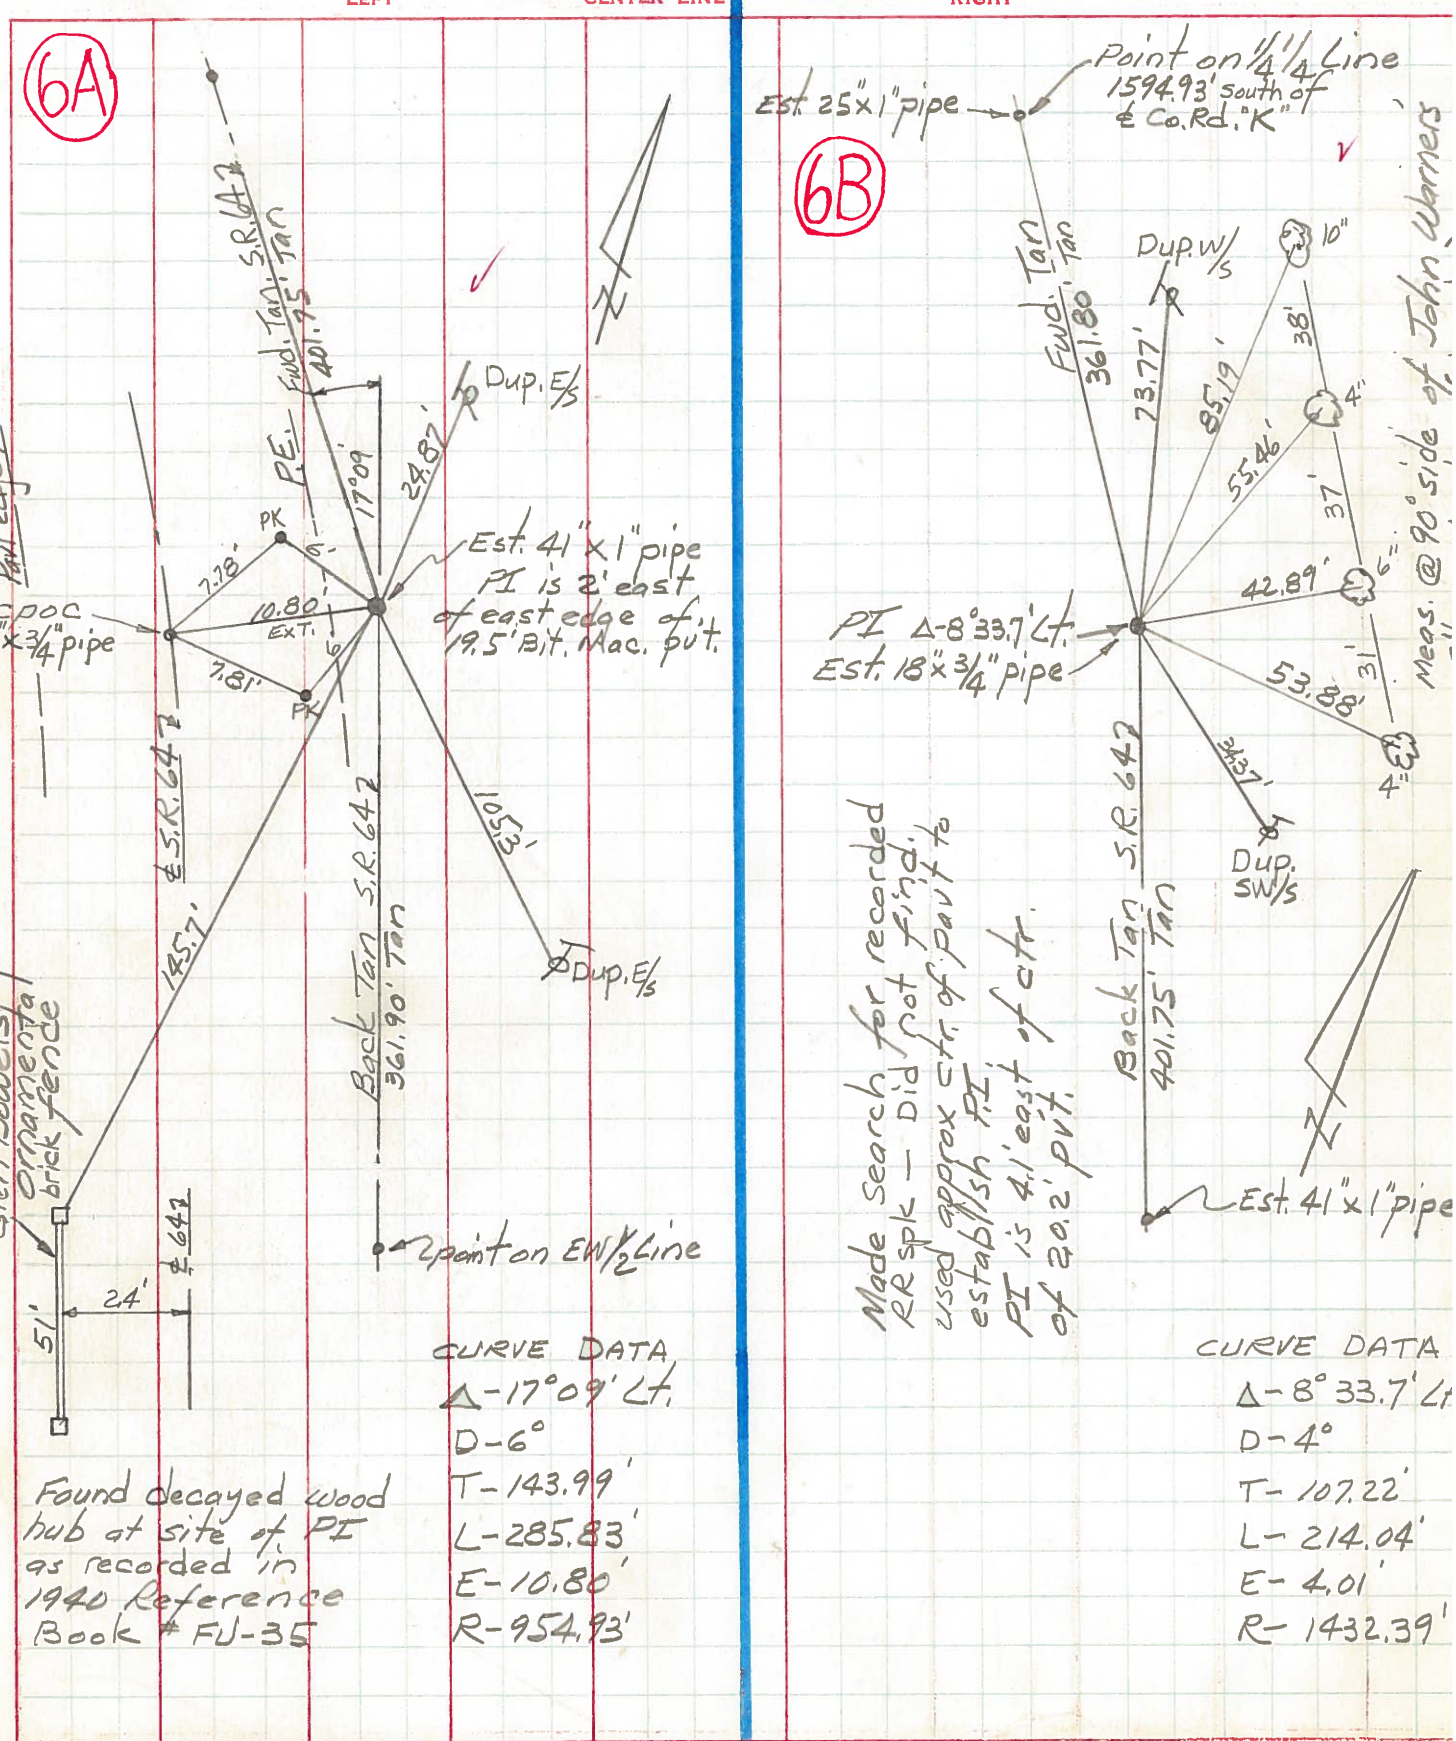 LEFT
CENTER LINE
RIGHT
6A
S.R. 647
Fwd. Tan.
401.75' Tan
P.E.
17°09'
24.87'
Dup. E/s
PK
7.78'
10.80'
EXT.
7.81'
PK
9'
6'
POC
x 3/4" pipe
Est. 41" x 1" pipe
PI is 2' east
of east edge of
19.5' Bit. Mac. pvt.
℄ S.R. 647
145.7'
Back Tan S.R. 647
361.90' Tan
103.51'
Dup. E/s
Ornamental
brick fence
℄ 647
24'
51'
point on EW 1/2 Line
CURVE DATA
Δ-17°09' Lt.
D-6°
T-143.99'
L-285.83'
E-10.80'
R-954.93'
Found decayed wood
hub at site of PI
as recorded in
1940 Reference
Book # FU-35
6B
Est. 25" x 1" pipe
Point on 1/4 1/4 Line
1594.93' south of
℄ Co. Rd. "K"
Fwd. Tan
361.80' Tan
Dup. W/s
73.77'
85.19'
10"
38'
55.46'
4"
37'
42.89'
6"
31'
53.88'
4"
34.37'
Dup.
SW/s
Meas. @ 90° side of John Warners
PI Δ-8°33.7' Lt.
Est. 18" x 3/4" pipe
Back Tan S.R. 647
401.75' Tan
Est. 41" x 1" pipe
Made Search for recorded
RR spk - Did not find.
used approx ctr. of pavt to
establish P.I.
PI is 4.1' east of ctr.
of 20.2' pvt.
CURVE DATA
Δ-8° 33.7' Lt
D-4°
T-107.22'
L-214.04'
E-4.01'
R-1432.39'